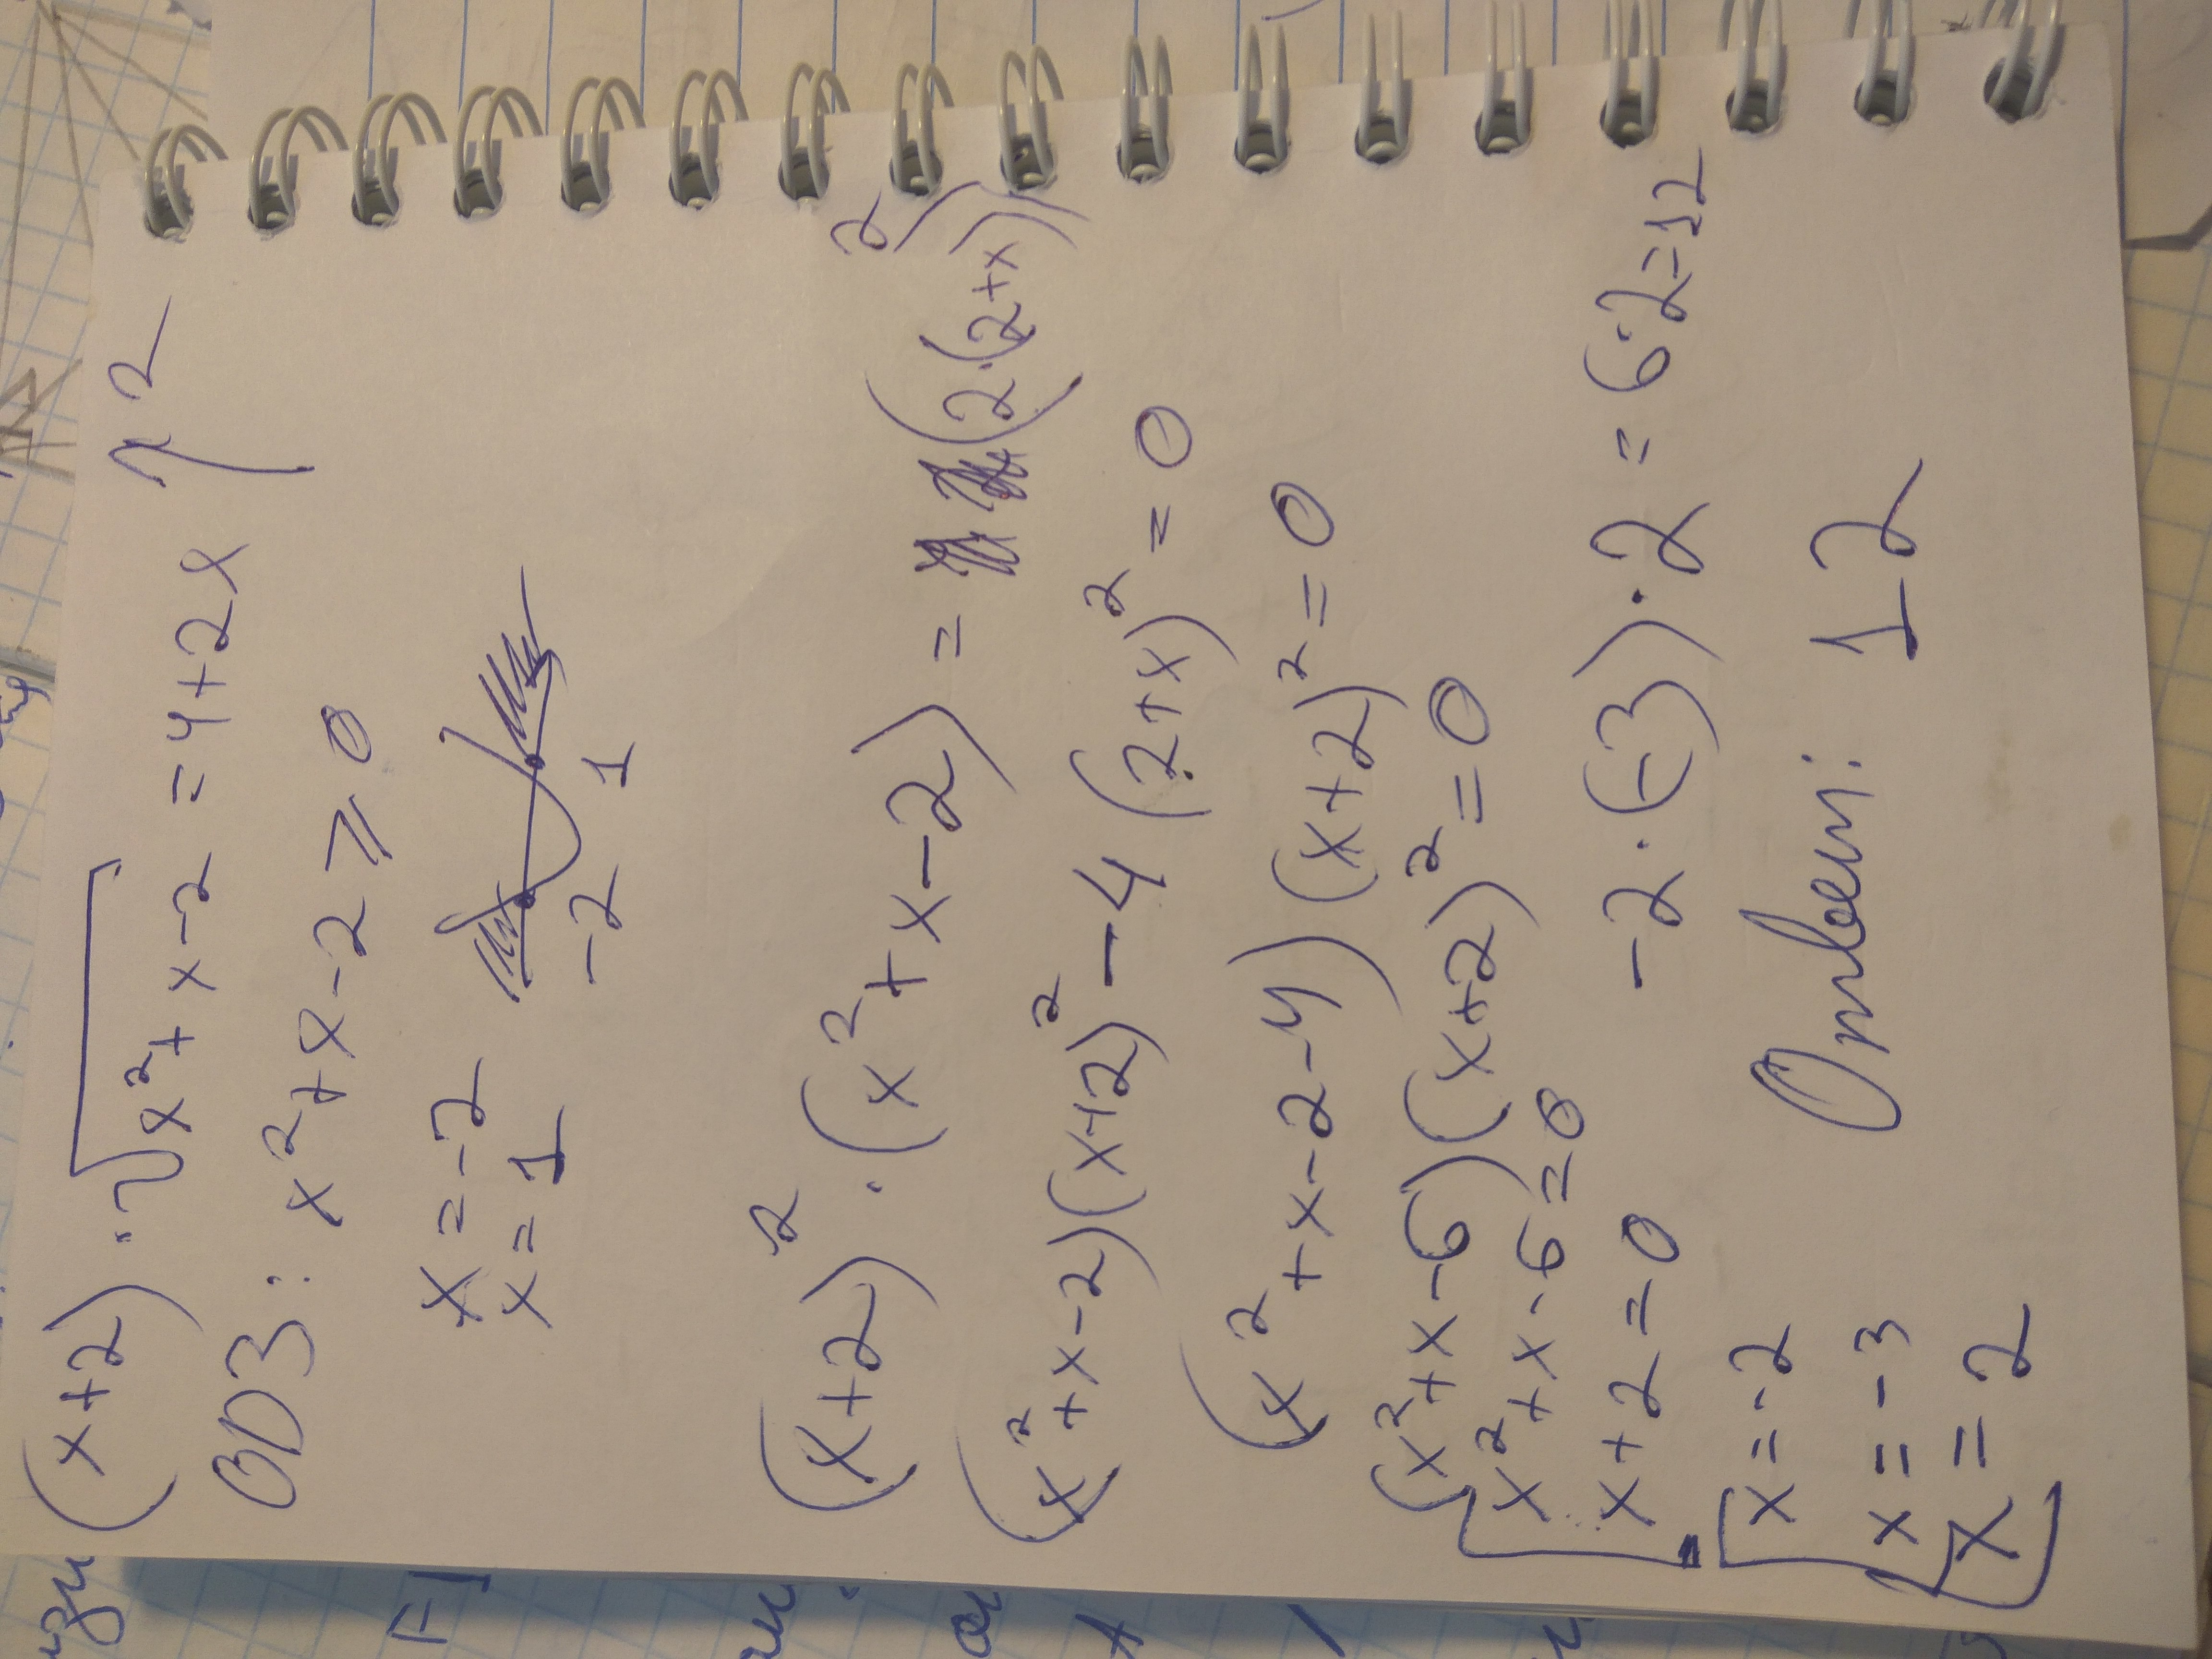 (x+2)·√x²+x-2 = 4+2x ↑2
ОДЗ: x²+x-2 ⩾ 0
x=-2
x=1
-2 1
(x+2)²·(x²+x-2) = (2·(2+x))²
(x²+x-2)(x+2)²-4(2+x)²=0
(x²+x-2-4)(x+2)²=0
(x²+x-6)(x+2)²=0
x²+x-6=0
x+2=0
-2·(-3)·2=6·2=12
x=-2
x=-3
x=2
Ответ: 12